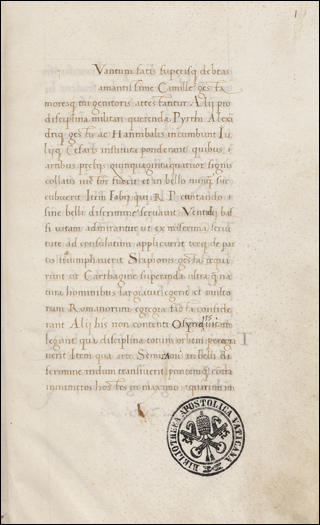 1
Vantum fatis superisq debeas
amantissime Camille gesta
moresq tui genitoris attestantur Alii pro
disciplina militari querenda Pyrrhi Alexā
driq gesta ac Hannibalis incumbunt Iu
lijq Cesaris instituta ponderant quibus
aribus prelijs quinquaginta quatuor signis
collatis
cubuerit Item Fabij qui R P cunctando
sine belli discrimine seruauit Ventidij bas
si uitam admirantur ut ex miserrima serui
tute ad consulatum applicuerit terq de par
to triumphauerit Scapionis gesta requi
runt ut Carthagine superanda ultra q na
tura hominibus largiatur egerit et multo
rum Romanorum egregia facta conside
rant Alij his non contenti Osyridis uitam
legunt qua disciplina totum orbem perag
uerit Item qua arte Semirami in belli di
scrimine indum transiuerit pontemq contra
innumeros hostes in maximo
BIBLIOTHECA APOSTOLICA VATICANA